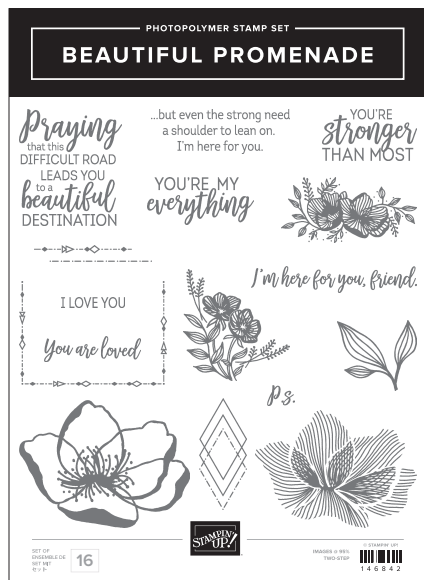 PHOTOPOLYMER STAMP SET
BEAUTIFUL PROMENADE
Praying
that this
DIFFICULT ROAD
LEADS YOU
to a
beautiful
DESTINATION
...but even the strong need
a shoulder to lean on.
I'm here for you.
YOU'RE
stronger
THAN MOST
YOU'RE MY
everything
I'm here for you, friend.
I LOVE YOU
You are loved
P.s.
SET OF
ENSEMBLE DE
SET MIT
セット
16
STAMPIN' UP!
IMAGES @ 95%
TWO-STEP
© STAMPIN' UP!
146842